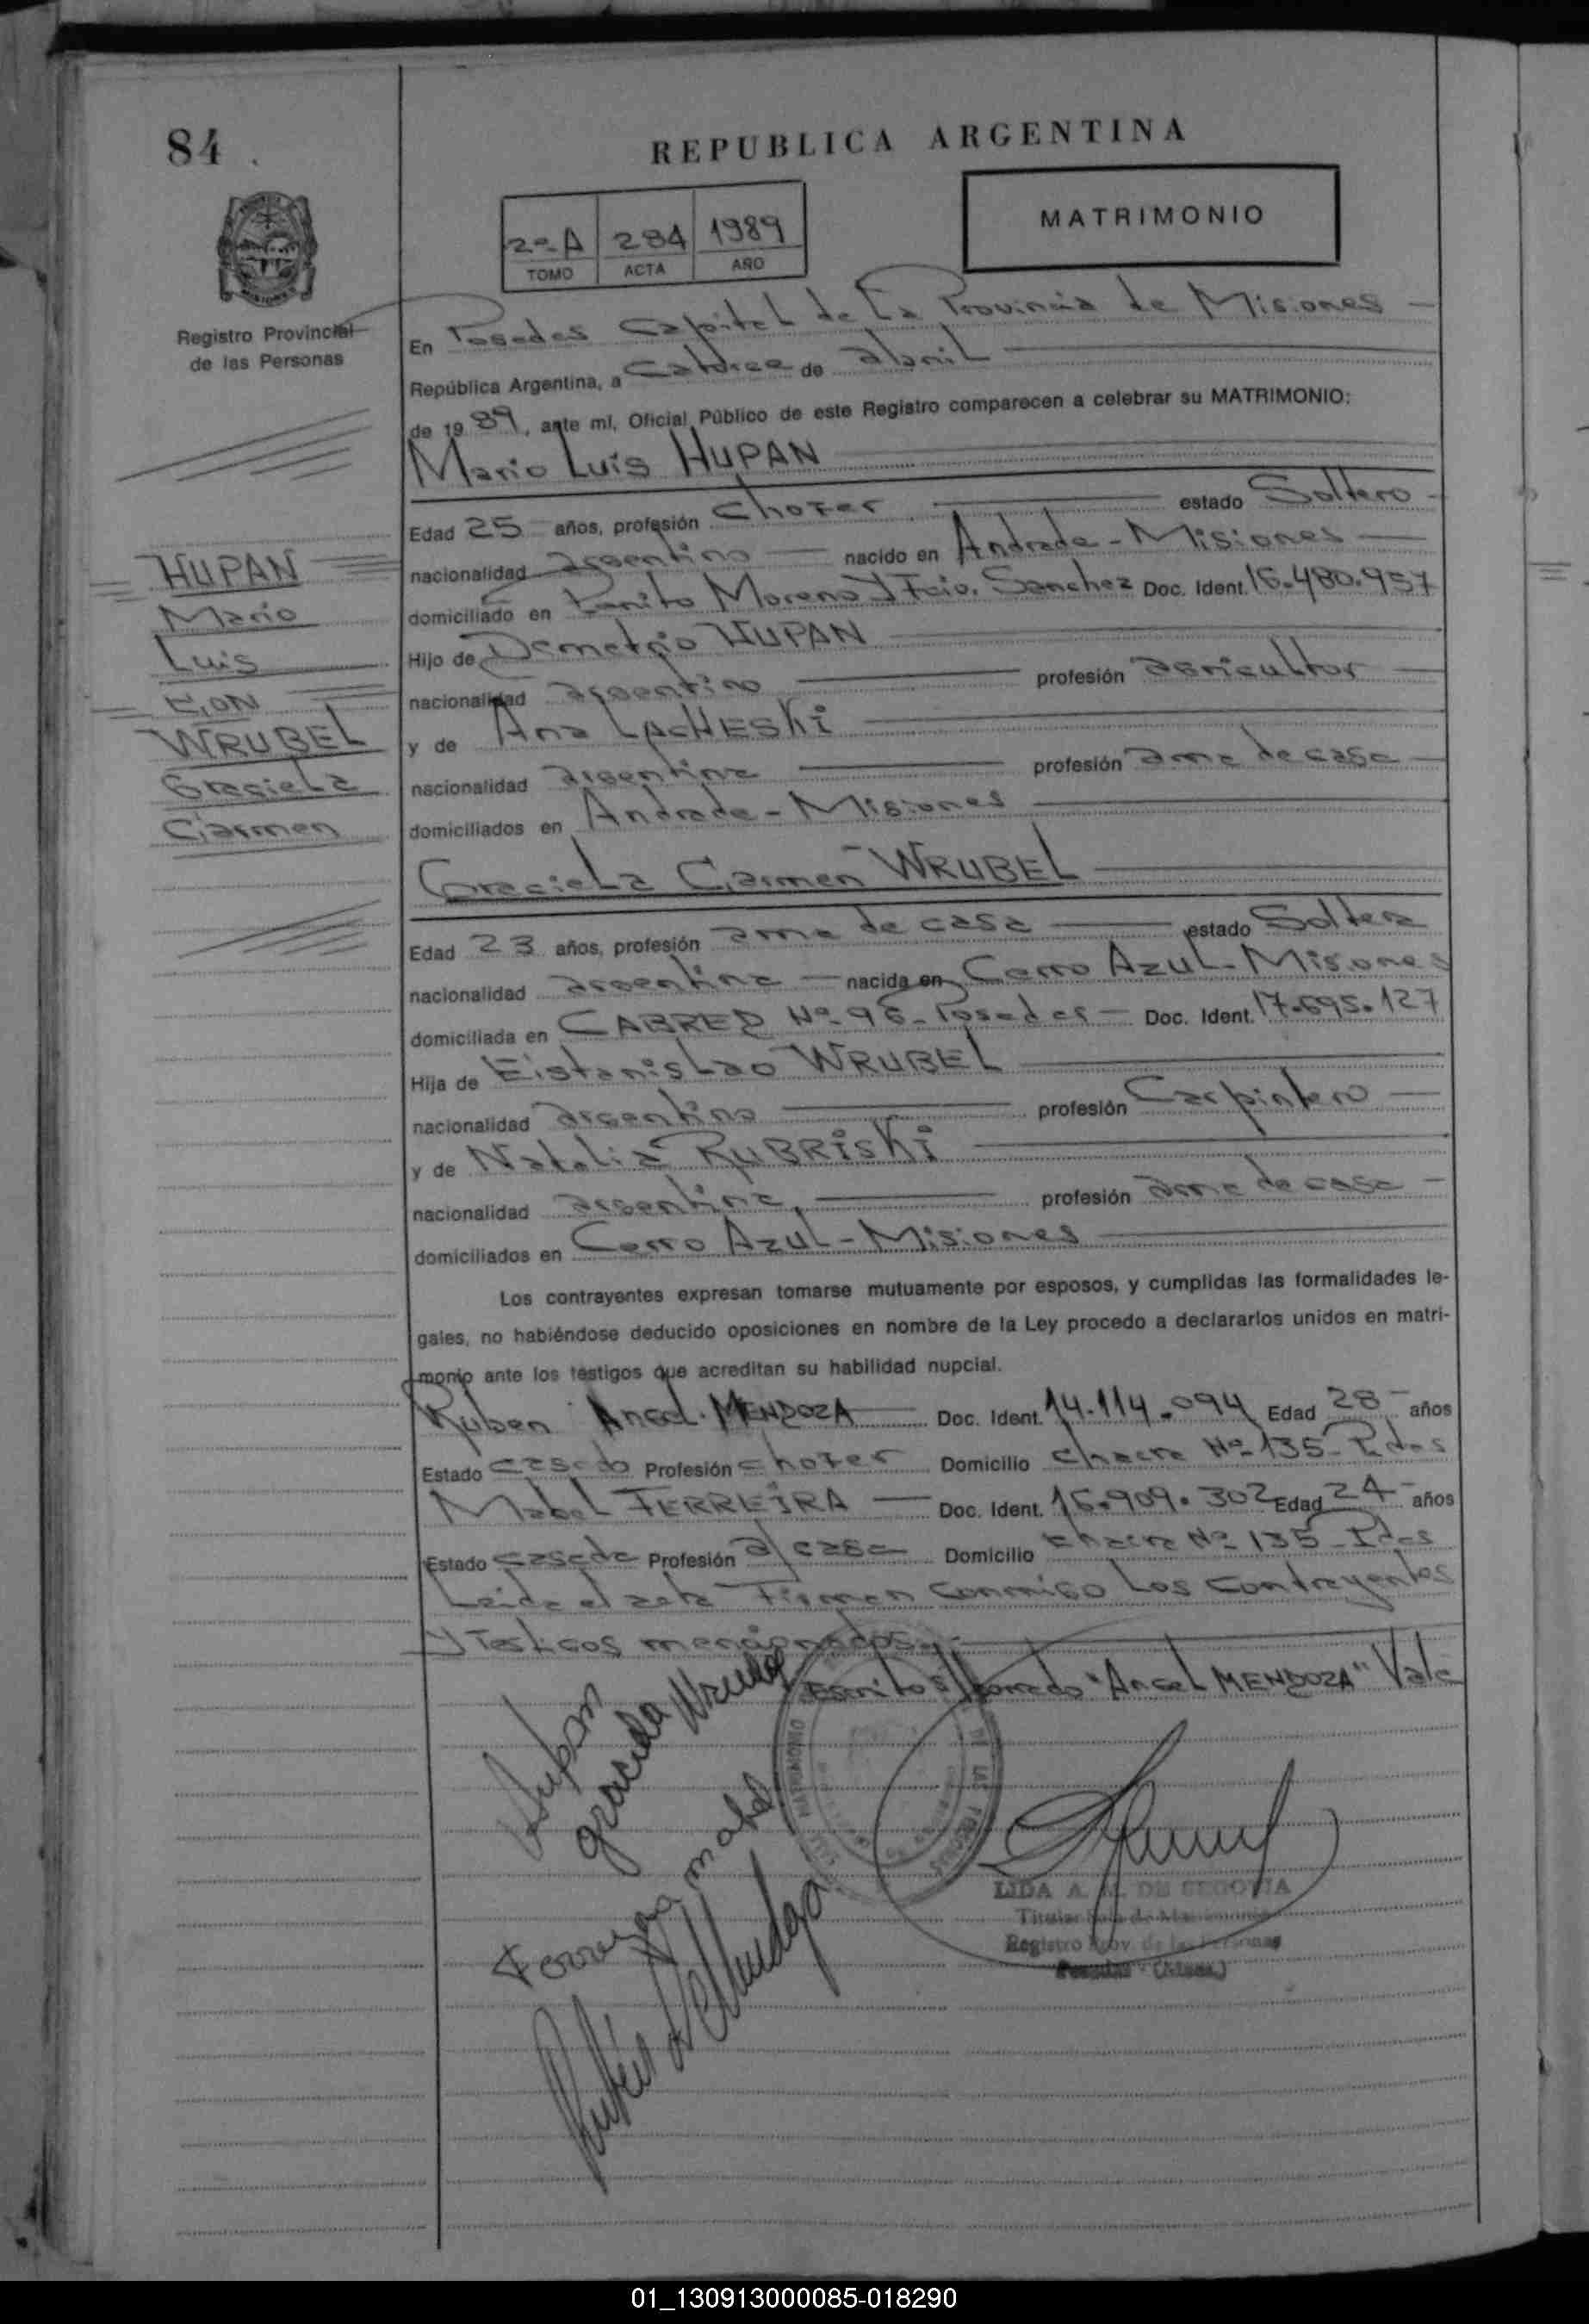 84
REPUBLICA ARGENTINA
MATRIMONIO
2º A 284 1989
TOMO ACTA AÑO
MISIONES
Registro Provincial
de las Personas
En Posadas Capital de La Provincia de Misiones
República Argentina, a Catorce de abril
de 1989, ante mí, Oficial Público de este Registro comparecen a celebrar su MATRIMONIO:
Mario Luis HUPAN
Edad 25 años, profesión chofer estado Soltero
nacionalidad argentino nacido en Andrade - Misiones
domiciliado en Perito Moreno y Fcio. Sanchez Doc. Ident. 16.480.957
Hijo de Demetrio HUPAN
nacionalidad argentino profesión agricultor
y de Ana LACHESKi
nacionalidad argentina profesión ama de casa
domiciliados en Andrade - Misiones
Graciela Carmen WRUBEL
HUPAN
Mario
Luis
CON
WRUBEL
Graciela
Carmen
Edad 23 años, profesión ama de casa estado Soltera
nacionalidad argentina nacida en Cerro AZUL - Misiones
domiciliada en CABRED Nº 96 - Posadas Doc. Ident. 17.695.127
Hija de Eistanislao WRUBEL
nacionalidad argentino profesión Carpintero
y de Natalia RUBRiSKi
nacionalidad argentina profesión ama de casa
domiciliados en Cerro AZUL - Misiones
Los contrayentes expresan tomarse mutuamente por esposos, y cumplidas las formalidades le-
gales, no habiéndose deducido oposiciones en nombre de la Ley procedo a declararlos unidos en matri-
monio ante los testigos que acreditan su habilidad nupcial.
Ruben Angel MENDOZA Doc. Ident. 14.114.094 Edad 28 años
Estado casado Profesión chofer Domicilio chacra Nº 135 - Pdas
Mabel FERREIRA Doc. Ident. 16.909.302 Edad 24 años
Estado casada Profesión a/casa Domicilio chacra Nº 135 - Pdas
Leida el acta Firman conmigo Los contrayentes
y Testigos mencionados.
Escrito s/borrado "Angel MENDOZA" Vale
Hupan
graciela Wrubel
Ferreyra mabel
Rubén A Mendoza
LIDA A. M. DE SEGOVIA
Titular Sala de Matrimonio
Registro Prov. de las Personas
Posadas - (Mnes.)
01_130913000085-018290